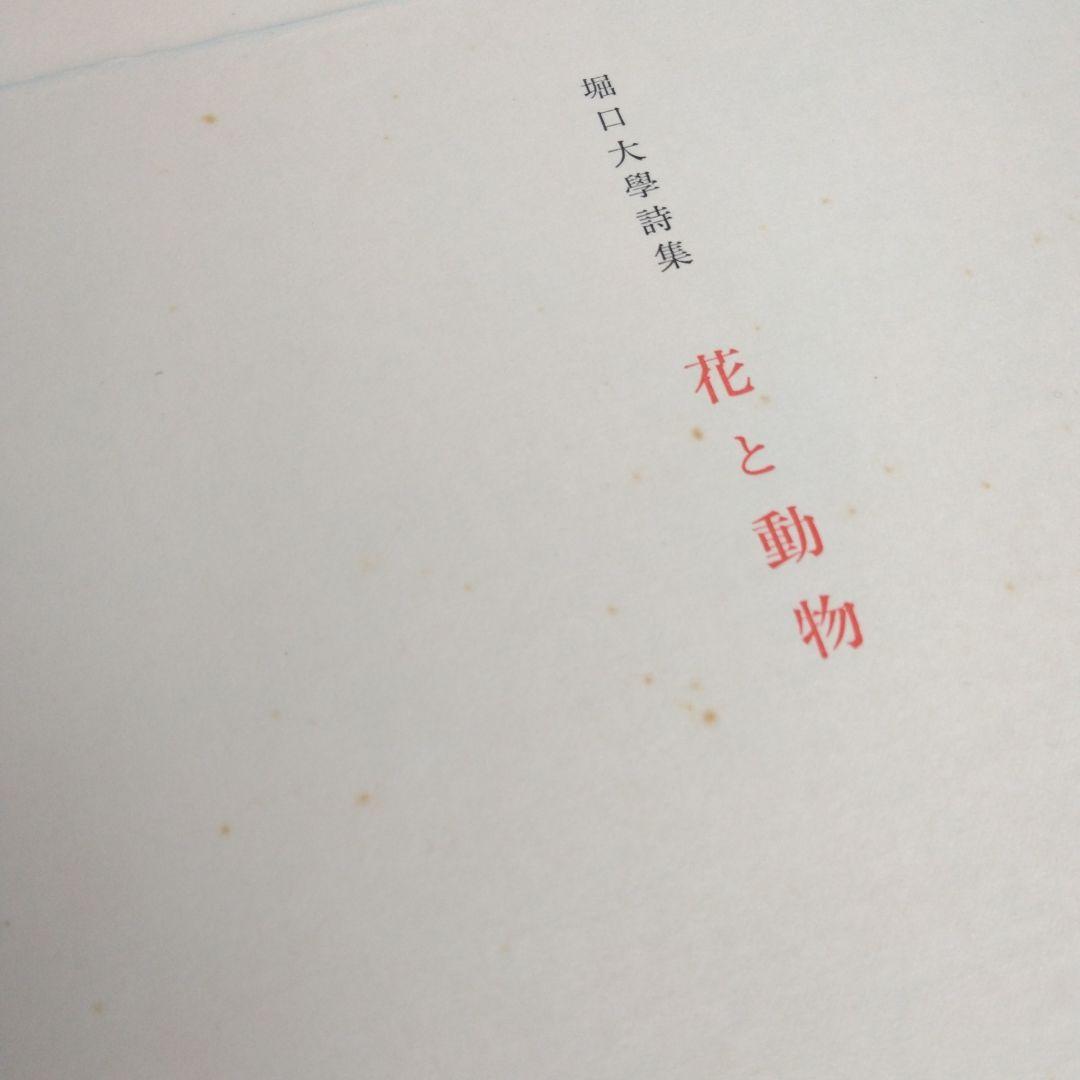 堀口大學詩集
花と動物